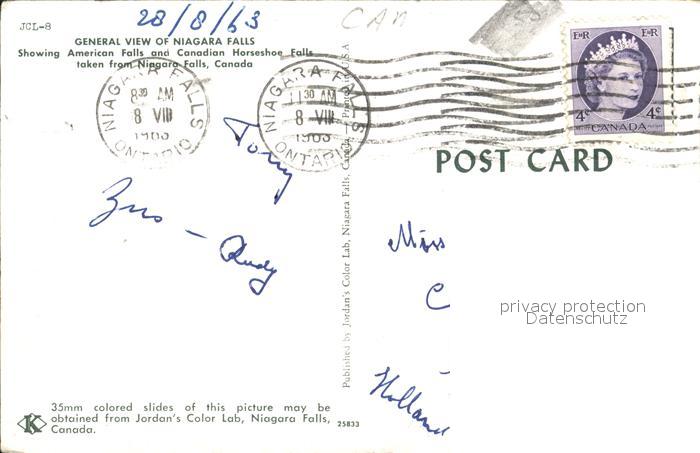 JCL-8
28/8/63
CAN
GENERAL VIEW OF NIAGARA FALLS
Showing American Falls and Canadian Horseshoe Falls
taken from Niagara Falls, Canada
NIAGARA FALLS
8 30 AM
8 VIII
1963
ONTARIO
NIAGARA FALLS
11 30 AM
8 VIII
1963
ONTARIO
E II R
E II R
4¢
4¢
CANADA
POST CARD
- Rudy
Miss
C
Holland
privacy protection
Datenschutz
Published by Jordan's Color Lab, Niagara Falls, Canada. — Printed in U.S.A
35mm colored slides of this picture may be
obtained from Jordan's Color Lab, Niagara Falls,
Canada.
K
25833